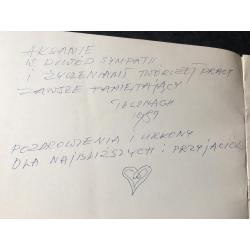 AKSANIE
W DOWÓD SYMPATII
I ŻYCZENIAMI TWÓRCZEJ PRACY
ZAWSZE PAMIĘTAJĄCY
POZDROWIENIA I UKŁONY
DLA NAJBLIŻSZYCH I PRZYJACIÓŁ